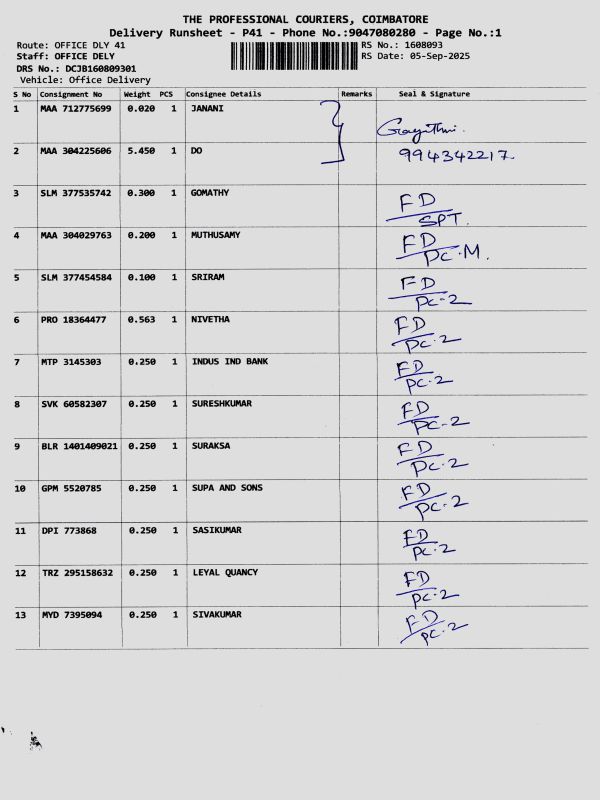 THE PROFESSIONAL COURIERS, COIMBATORE
Delivery Runsheet - P41 - Phone No.:9047080280 - Page No.:1
Route: OFFICE DLY 41 RS No.: 1608093
Staff: OFFICE DELY RS Date: 05-Sep-2025
DRS No.: DCJB160809301
Vehicle: Office Delivery
S No Consignment No Weight PCS Consignee Details Remarks Seal & Signature
1 MAA 712775699 0.020 1 JANANI Gayithri.
2 MAA 304225606 5.450 1 DO 994342217.
3 SLM 377535742 0.300 1 GOMATHY FD
SPT.
4 MAA 304029763 0.200 1 MUTHUSAMY FD
PC.M.
5 SLM 377454584 0.100 1 SRIRAM FD
PC-2
6 PRO 18364477 0.563 1 NIVETHA FD
PC.2
7 MTP 3145303 0.250 1 INDUS IND BANK FD
PC.2
8 SVK 60582307 0.250 1 SURESHKUMAR FD
PC-2
9 BLR 1401409021 0.250 1 SURAKSA FD
PC.2
10 GPM 5520785 0.250 1 SUPA AND SONS FD
PC.2
11 DPI 773868 0.250 1 SASIKUMAR FD
PC.2
12 TRZ 295158632 0.250 1 LEYAL QUANCY FD
PC.2
13 MYD 7395094 0.250 1 SIVAKUMAR FD
PC.2